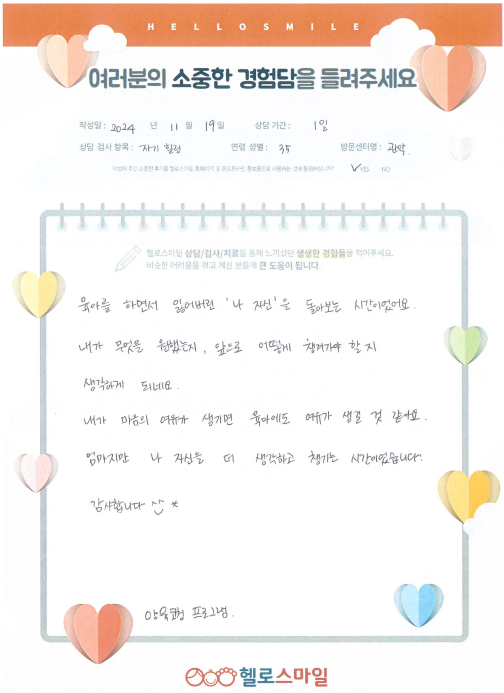 HELLOSMILE
여러분의 소중한 경험담을 들려주세요
작성일 : 2024 년 11 월 19일 상담 기간 : 1일
상담 검사 항목 : 자기 힐링 연령 성별 : 35 방문센터명 : 관악
작성해 주신 소중한 후기를 헬로스마일 홈페이지 및 온오프라인 홍보용으로 사용하는 것에 동의하십니까? ✓YES NO
헬로스마일 상담/검사/치료를 통해 느끼셨던 생생한 경험들을 적어주세요.
비슷한 어려움을 겪고 계신 분들께 큰 도움이 됩니다.
육아를 하면서 잃어버린 '나 자신'을 돌아보는 시간이었어요.
내가 무엇을 원했는지, 앞으로 어떻게 챙겨가야 할지
생각하게 되네요.
내가 마음의 여유가 생기면 육아에도 여유가 생길 것 같아요.
엄마지만 나 자신을 더 생각하고 챙기는 시간이었습니다.
감사합니다 ^^ *
양육코칭 프로그램.
헬로스마일